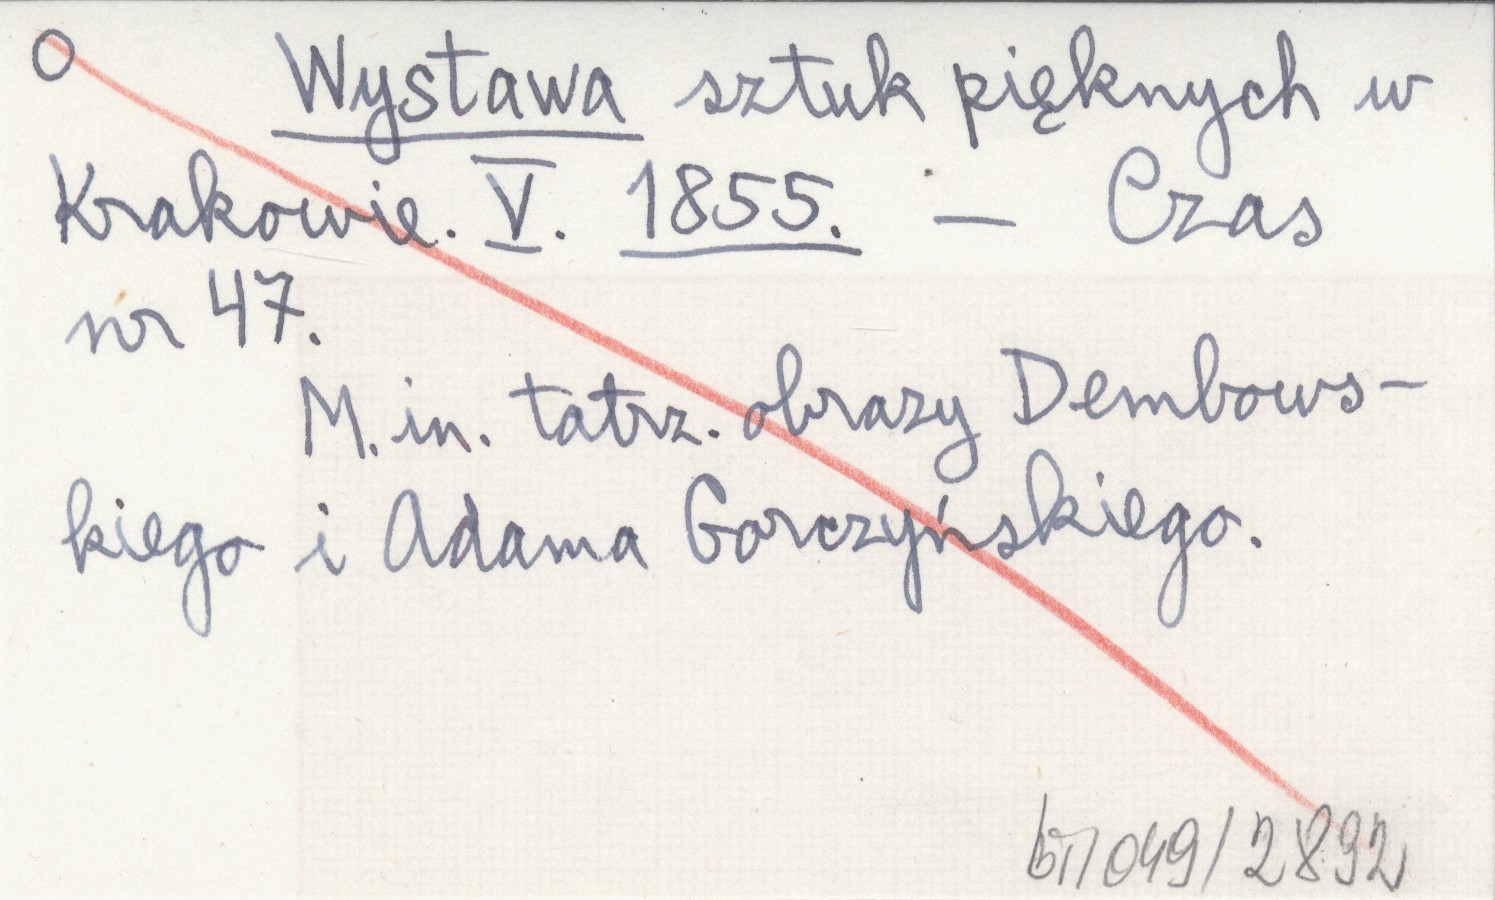 O Wystawa sztuk pięknych w
Krakowie. V. 1855. — Czas
nr 47.
M. in. tatrz. obrazy Dembows-
kiego i Adama Gorczyńskiego.
bT/049/2892